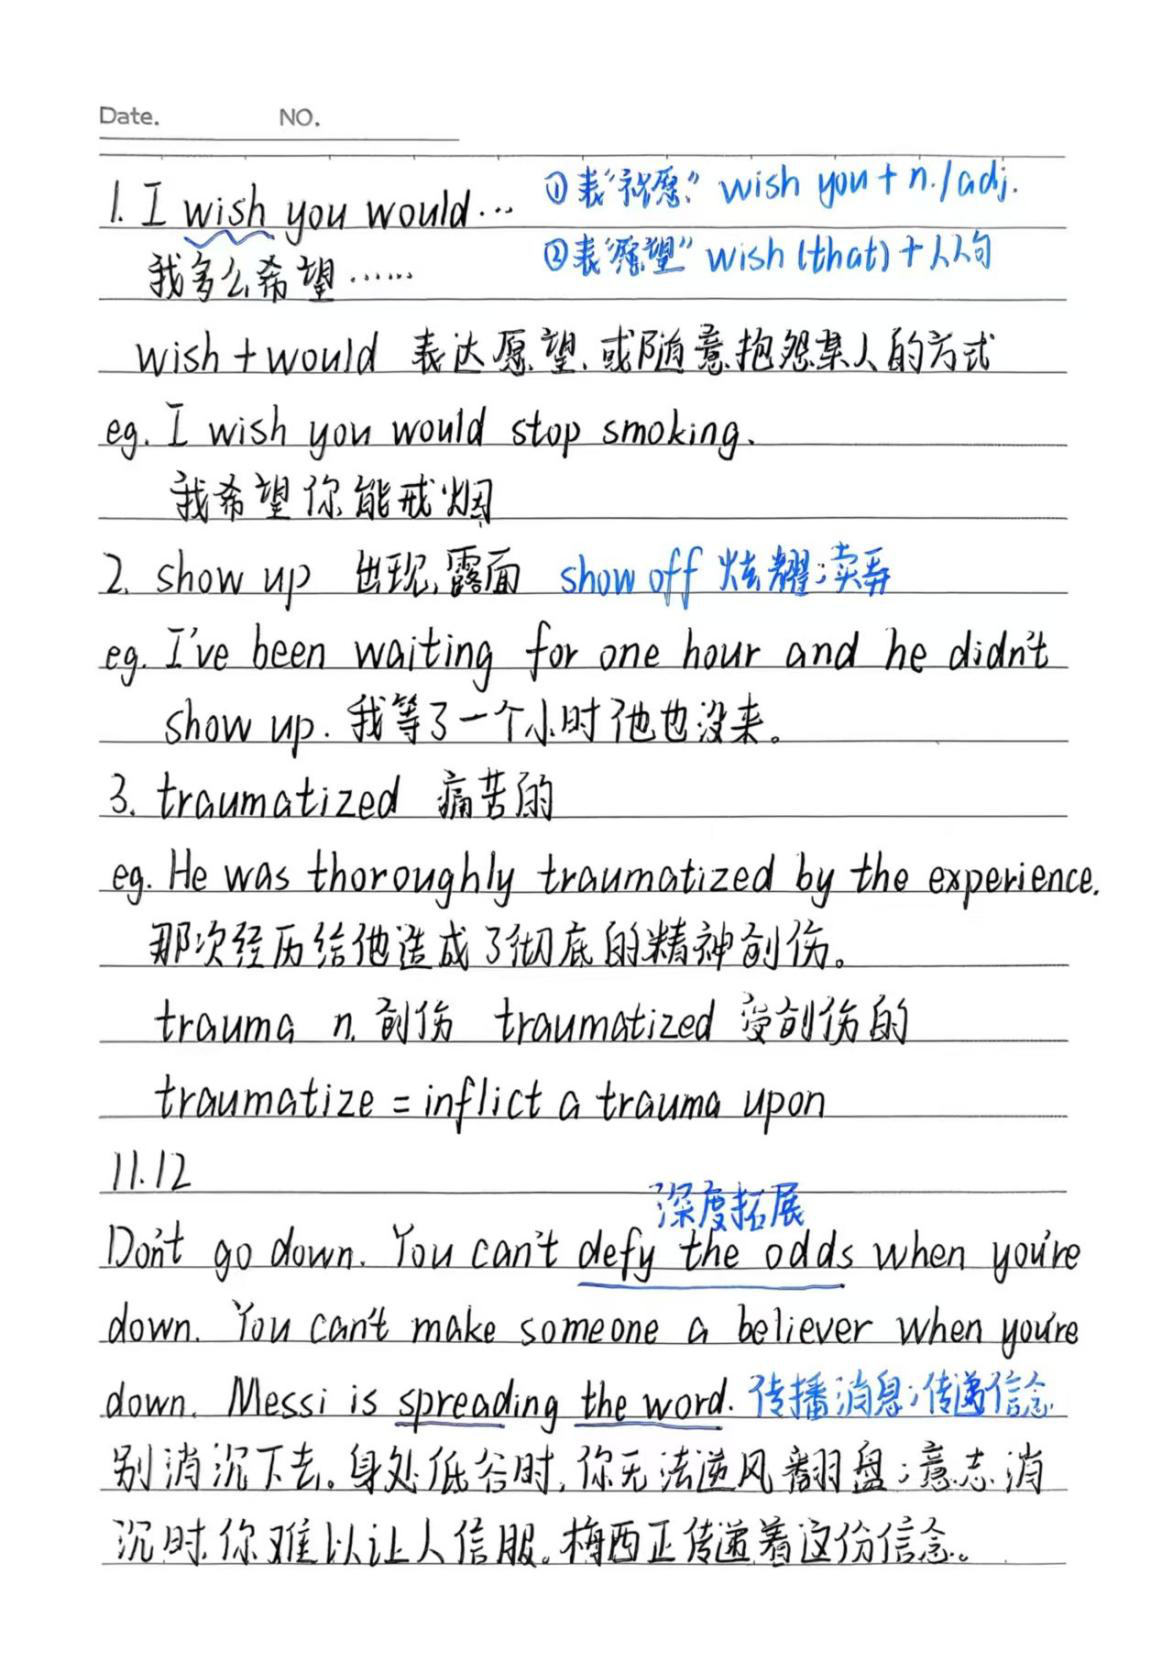 Date. NO.
1. I wish you would… ①表“祝愿” wish you + n./adj.
我多么希望…… ②表“愿望” wish (that) + 从句
wish + would 表达愿望,或随意抱怨某人的方式
eg. I wish you would stop smoking.
我希望你能戒烟
2. show up 出现,露面 show off 炫耀;卖弄
eg. I've been waiting for one hour and he didn't
show up. 我等了一个小时他也没来。
3. traumatized 痛苦的
eg. He was thoroughly traumatized by the experience.
那次经历给他造成了彻底的精神创伤。
trauma n. 创伤 traumatized 受创伤的
traumatize = inflict a trauma upon
11.12
深度拓展
Don't go down. You can't defy the odds when you're
down. You can't make someone a believer when you're
down. Messi is spreading the word. 传播消息;传递信念
别消沉下去。身处低谷时,你无法逆风翻盘;意志消
沉时,你难以让人信服。梅西正传递着这份信念。